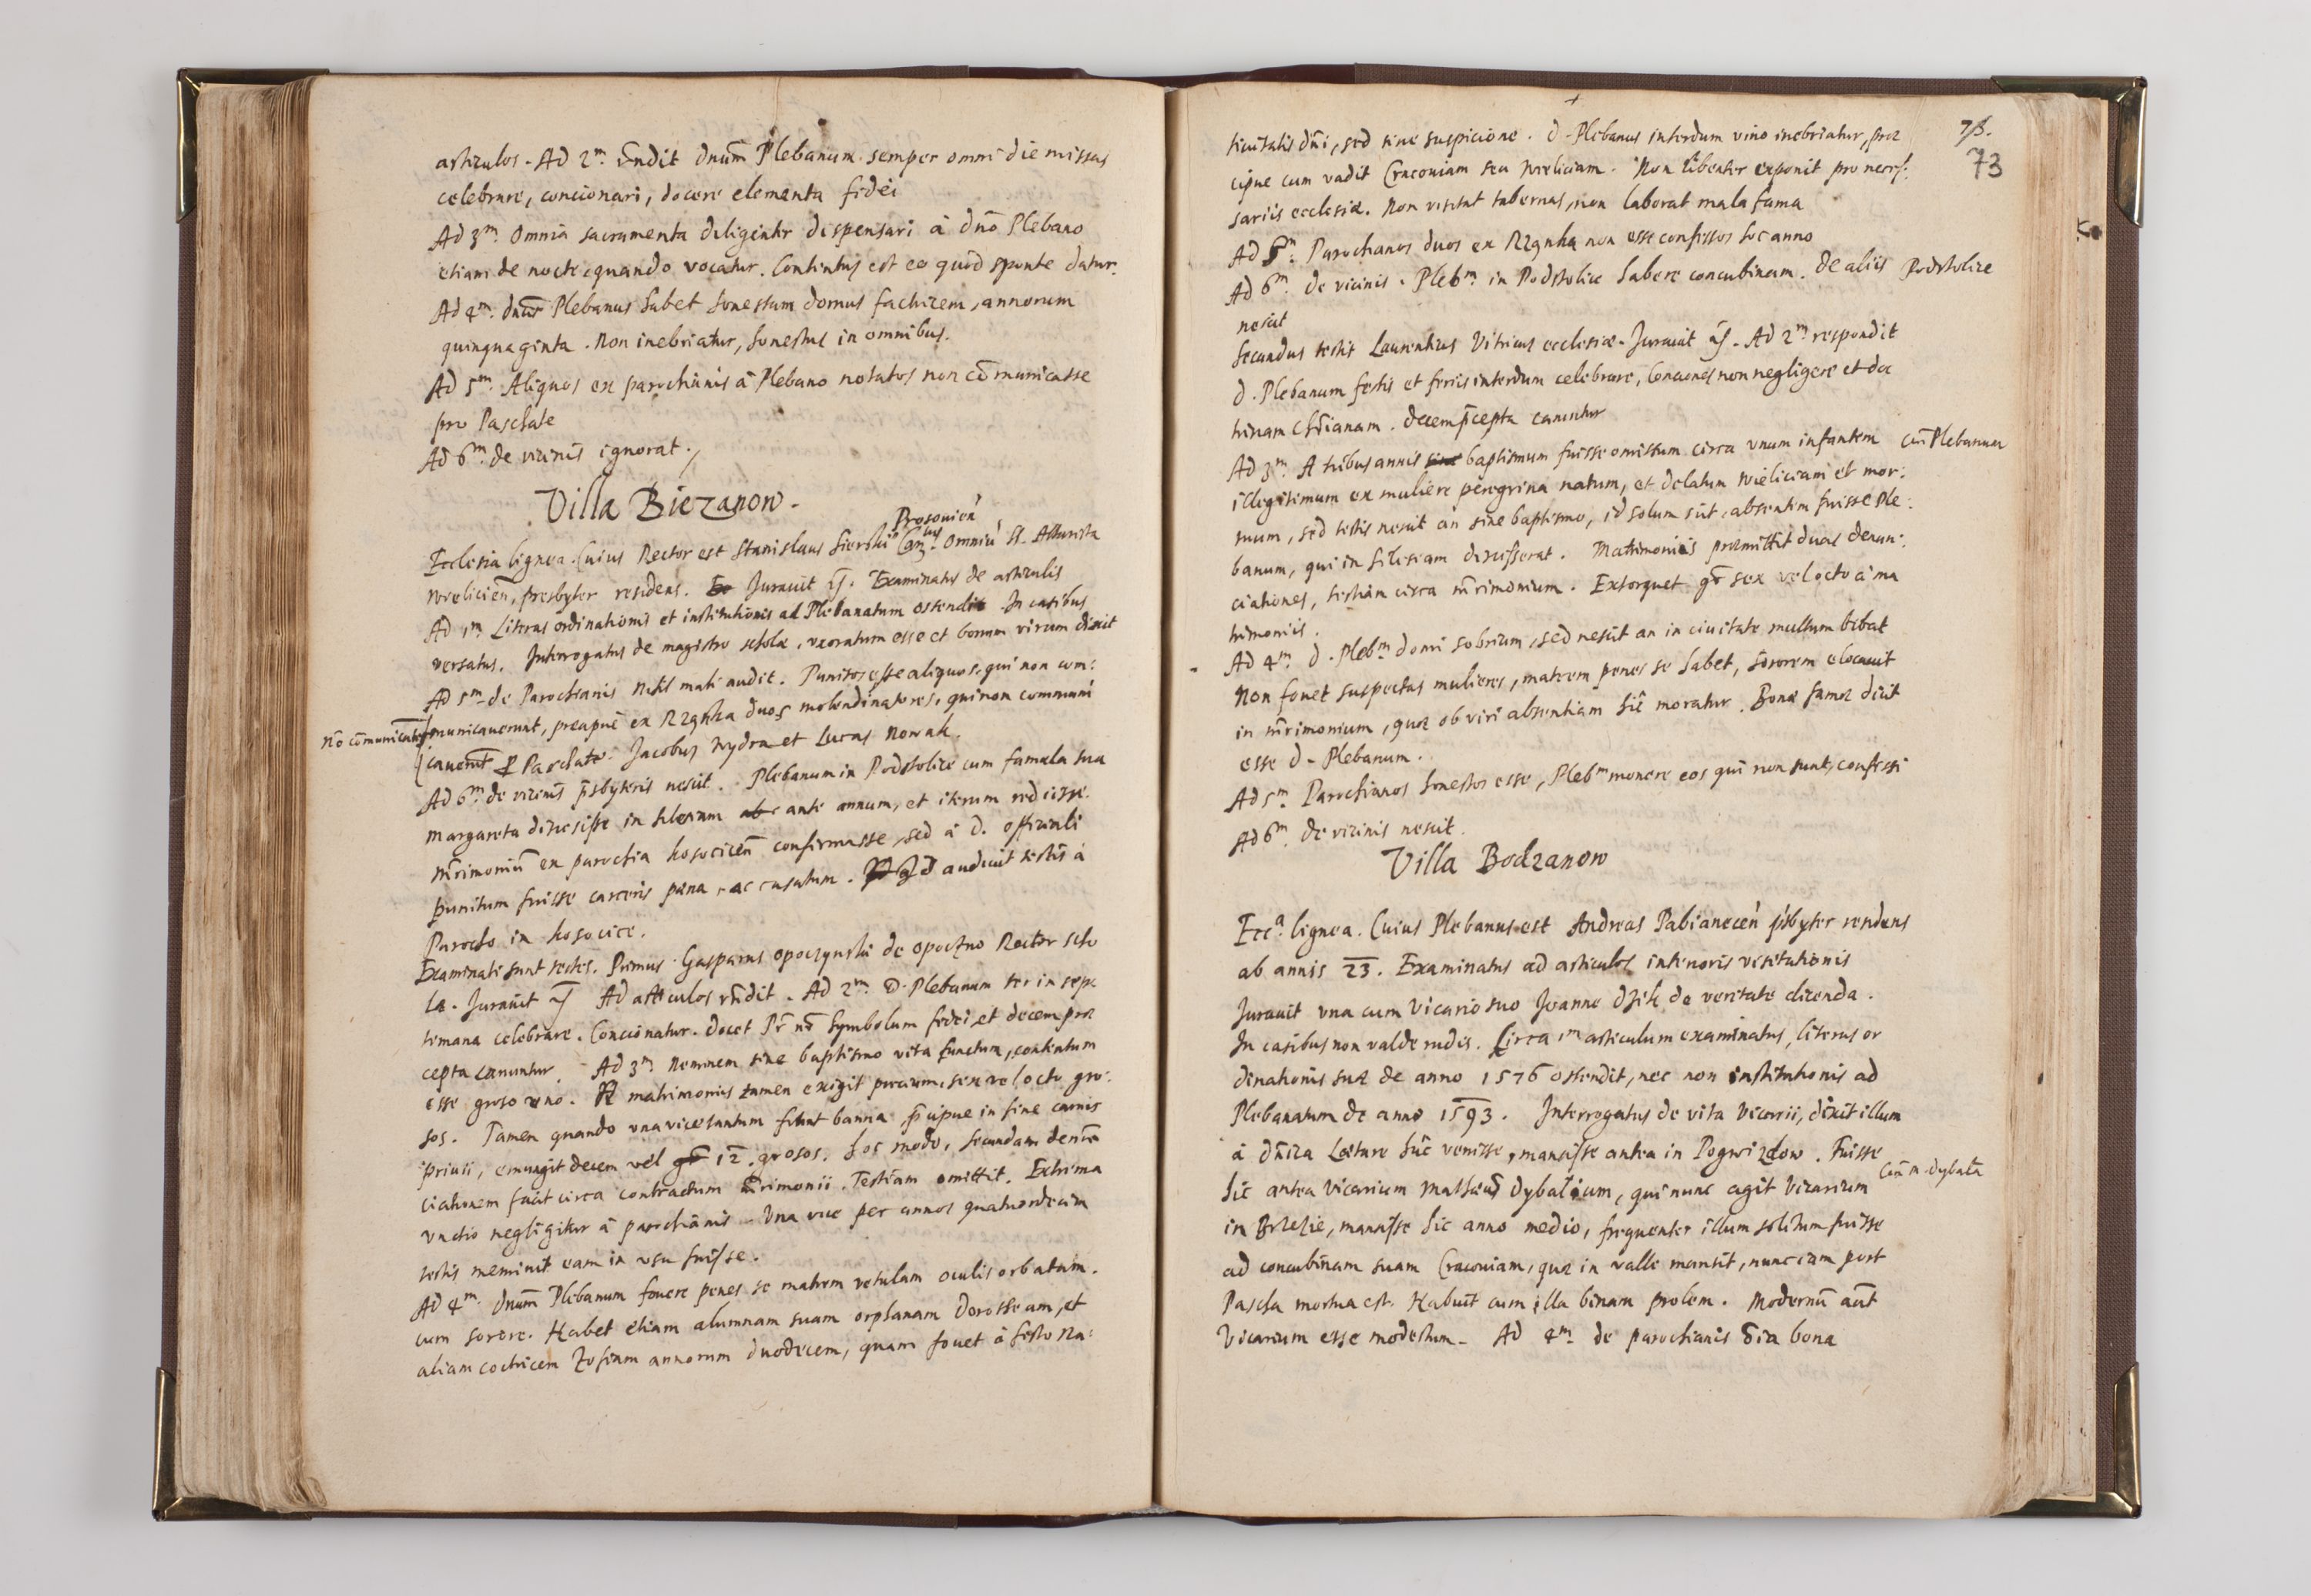 articulos. Ad 2m. rñdit dnūm Plebanum semper omni die missas
celebrare, concionari, docere elementa fidei
Ad 3m. Omnia sacramenta diligenter dispensari à dnō Plebano
etiam de nocte quando vocatur. Contentus est eo quod sponte datur.
Ad 4m. dnūs Plebanus habet honestam domus factricem, annorum
quinquaginta. Non inebriatur, honestus in omnibus.
Ad 5m. Aliquos ex parochianis à Plebano notatos non cōmunicasse
pro Paschate
Ad 6m. de vicinis ignorat.
Villa Biezanow.
Prosouień
Ecclesia lignea. Cuius Rector est Stanislaus Sierski Cantus Omniū SS. Altarista
Wielicień, presbyter residens. Iurauit. Examinatus de articulis
Ad 1m. Literas ordinationis et institutionis ad Plebanatum ostendit. In casibus
versatus. Interrogatus de magistro scholæ, uxoratum esse et bonum virum dixit
Ad 5m. de Parochianis nihil mali audit. Punitos esse aliquos, qui non com:
nō cōmunicātes
municauerunt, præcipuè ex Rząnka duos molendinatores, qui non communi
cauerūt p Paschate. Jacobus Wydra et Lucas Nowak.
Ad 6m. de vicinis p̄sbyteris nescit. Plebanum in Podstolice cum famula sua
Margareta discessisse in ante annum, et iterum redisse.
m̄rimoniū ex parochia Kosocicēn confirmasse, sed à D. officiali
punitum fuisse carceris pæna, accusatum. audiuit testis à
Parocho in Kosocice.
Examinati sunt testes. Primus Gasparus Opoczynski de Opoczno Rector scho
læ. Jurauit Ad articulos rñdit. Ad 2m. D. Plebanum ter in sep
timana celebrare. Concionatur. Docet Pr̄ nr̄ Symbolum fidei et decem præ
cepta canuntur. Ad 3m. Neminem sine baptismo vita functum, contentum
esse groso uno. matrimoniis tamen exigit precium, sex vel octo gro:
sos. Tamen quando una vice tantum fiunt banna p̄cipue in fine carnis
priuii, emungit decem vel 12. grosos. hoc modo, secundam denūn
ciationem facit circa contractum m̄rimonii. Testiam omittit. Extrema
unctio negligitur à parochianis. Una vice per annos quatuordecim
testis meminit eam in usu fuisse.
Ad 4m. dnūm Plebanum fouere penes se matrem vetulam oculis orbatam.
cum sorore. Habet etiam alumnam suam orphanam Dorotheam, et
aliam coctricem Zofiam annorum duodecem, quam fouet à festo Na:
73.
73
tiuitatis dñi, sed sine suspicione. D. Plebanus interdum vino inebriatur, præ
cipue cum vadit Cracouiam seu Wieliciam. Non libenter exponit pro neces:
sariis ecclesiæ. Non visitat tabernas, non laborat mala fama
Ad 5m. Parochanos duos ex Rząnka non esse confessos hoc anno
Ad 6m. De vicinis. Plebm. in Podstolice habere concubinam. De aliis
Podstolice
nescit
Secundus testis Laurentius Vitricus ecclesiæ. Jurauit. Ad 2m. respondit
D. Plebanum festis et feriis interdum celebrare, Conciones non negligere et doc
trinam Chr̄ianam. decem p̄cepta canuntur
Ad 3m. A tribus annis baptismum fuisse omissum circa unum infantem
Cūi Plebanum
illegitimum ex muliere peregrina natum, et delatum Wieliciam et mor:
tuum, sed testis nescit an sine baptismo, id solum scit, absentem fuisse Ple:
banum, qui in Silesiam discesserat. Matrimoniis præmittit duas denun:
ciationes, tertiam circa m̄rimonium. Extorquet gr̄ sex vel octo à ma
trimoniis.
Ad 4m. D. Plebm. domi sobrium, sed nescit an in ciuitate multum bibat
Non fouet suspectas mulieres, matrem penes se habet, sororem elocauit
in m̄rimonium, quæ ob viri absentiam hic moratur. Bonæ famæ dicit
esse D. Plebanum.
Ad 5m. Parochianos honestos esse, Plebm monere eos qui non sunt confessi
Ad 6m. de vicinis nescit.
Villa Bodzanow
Ecca. lignea. Cuius Plebanus est Andreas Pabianecēn p̄sbyter residens
ab annis 23. Examinatus ad articulos interioris visitationis
Jurauit una cum Vicario suo Joanne Dzik de veritate dicenda.
In casibus non valde rudis. Circa 1m articulum examinatus, literas or
dinationis suæ de anno 1576 ostendit, nec non institutionis ad
Plebanatum de anno 1593. Interrogatus de vita Vicarii, dixit illum
à dñica Lætare huc venisse, mansisse antea in Pogwizdow. Fuisse
hic antea Vicarium Mathæus Dybalium, qui nunc agit Vicarium
Con. M. Dybala
in Brzezie, mansisse hic anno medio, frequenter illum solitum fuisse
ad concubinam suam Cracouiam, quæ in valle mansit, nunc iam post
Pascha mortua est. Habuit cum illa binam prolem. Modernū aūt
Vicarium esse modestum. Ad 4m. de parochianis oīa bona